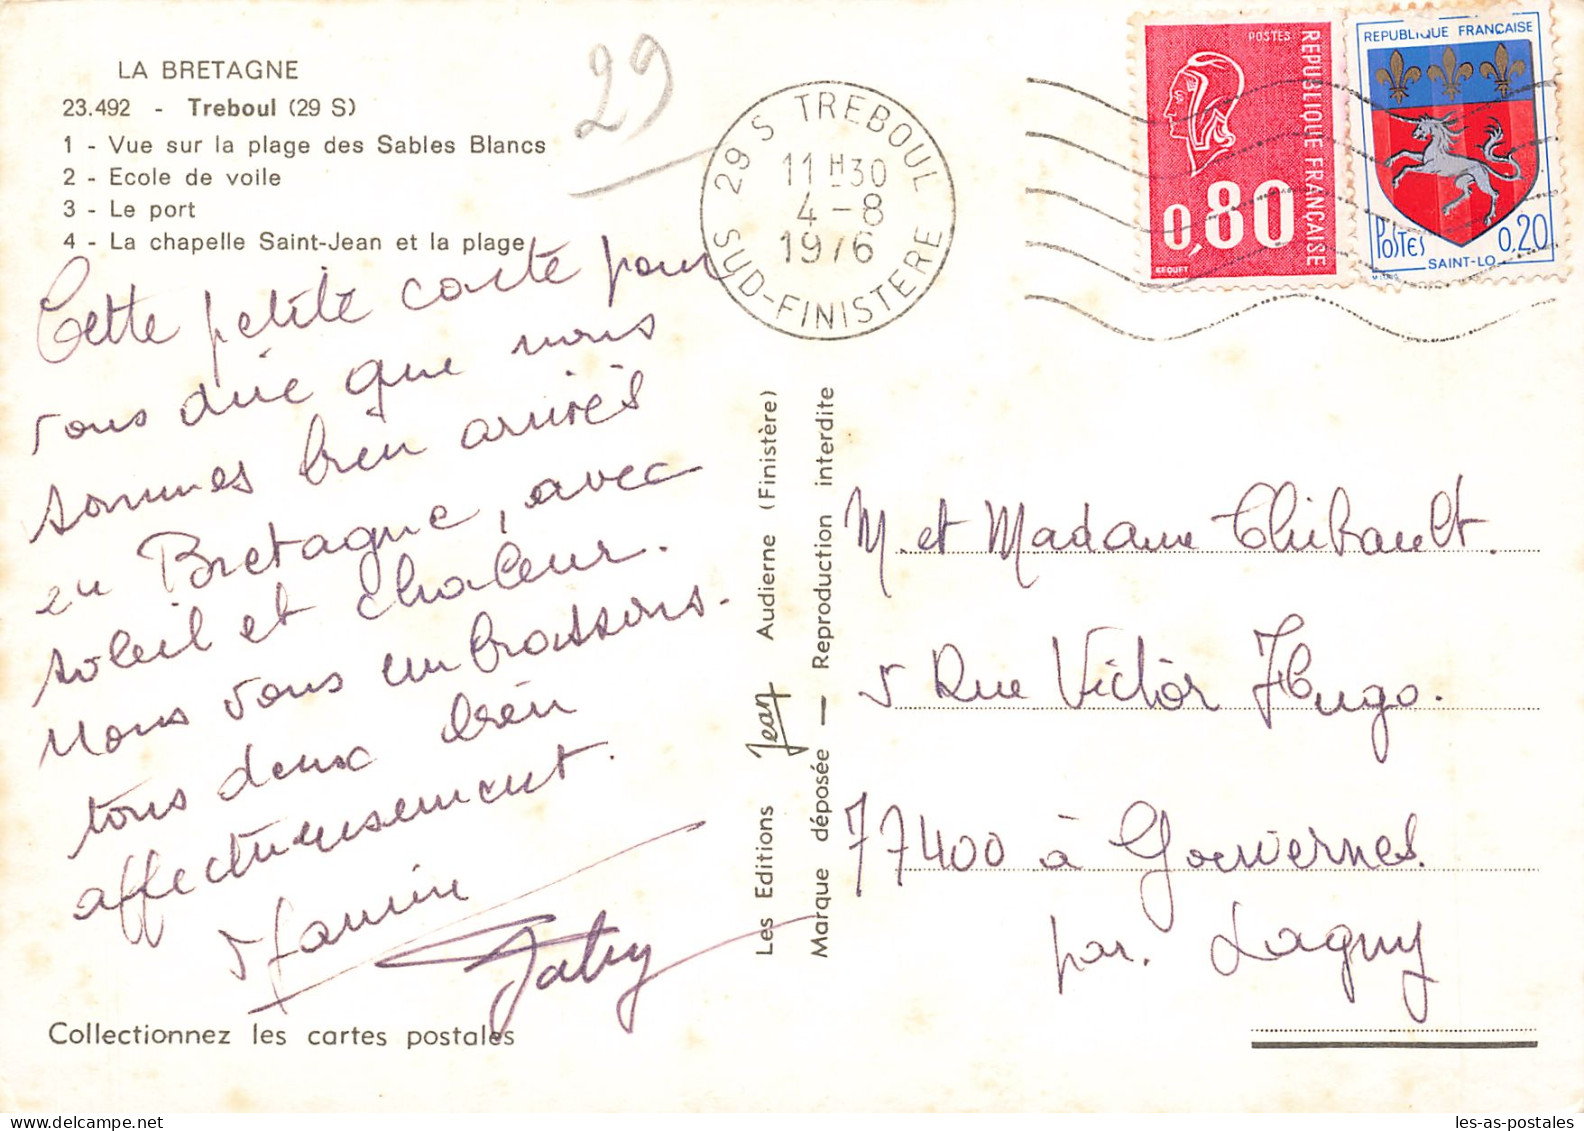 LA BRETAGNE
23.492 - Treboul (29 S)
1 - Vue sur la plage des Sables Blancs
2 - Ecole de voile
3 - Le port
4 - La chapelle Saint-Jean et la plage
29
29 S TREBOUL
11 H 30
4 - 8
1976
SUD-FINISTERE
POSTES
REPUBLIQUE FRANÇAISE
0,80
BEQUET
REPUBLIQUE FRANÇAISE
POSTES 0,20
SAINT-LO
Cette petite carte pour
vous dire que nous
sommes bien arrivés
en Bretagne, avec
soleil et chaleur.
Nous vous embrassons
tous deux bien
affectueusement.
Collectionnez les cartes postales
Les Editions Jean Audierne (Finistère)
Marque déposée — Reproduction interdite
M. et Madame Thibault.
5 Rue Victor Hugo.
77400 à Gouvernes.
par. Lagny
les-as-postales - Delcampe.net